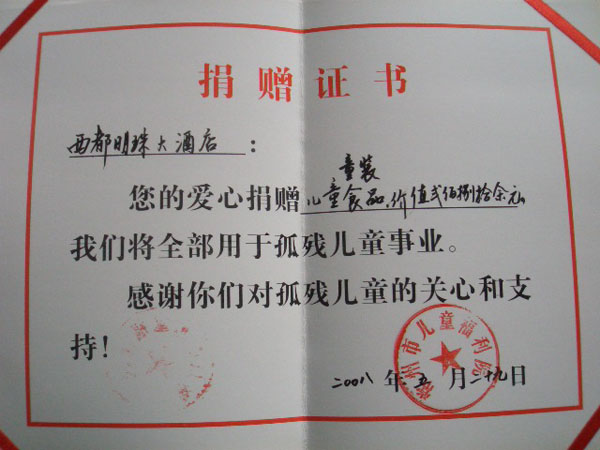 捐赠证书
西都明珠大酒店：
童装
您的爱心捐赠儿童食品,价值弍佰捌拾余元
我们将全部用于孤残儿童事业。
感谢你们对孤残儿童的关心和支
持!
州市儿童福利院
2008年五月二十九日